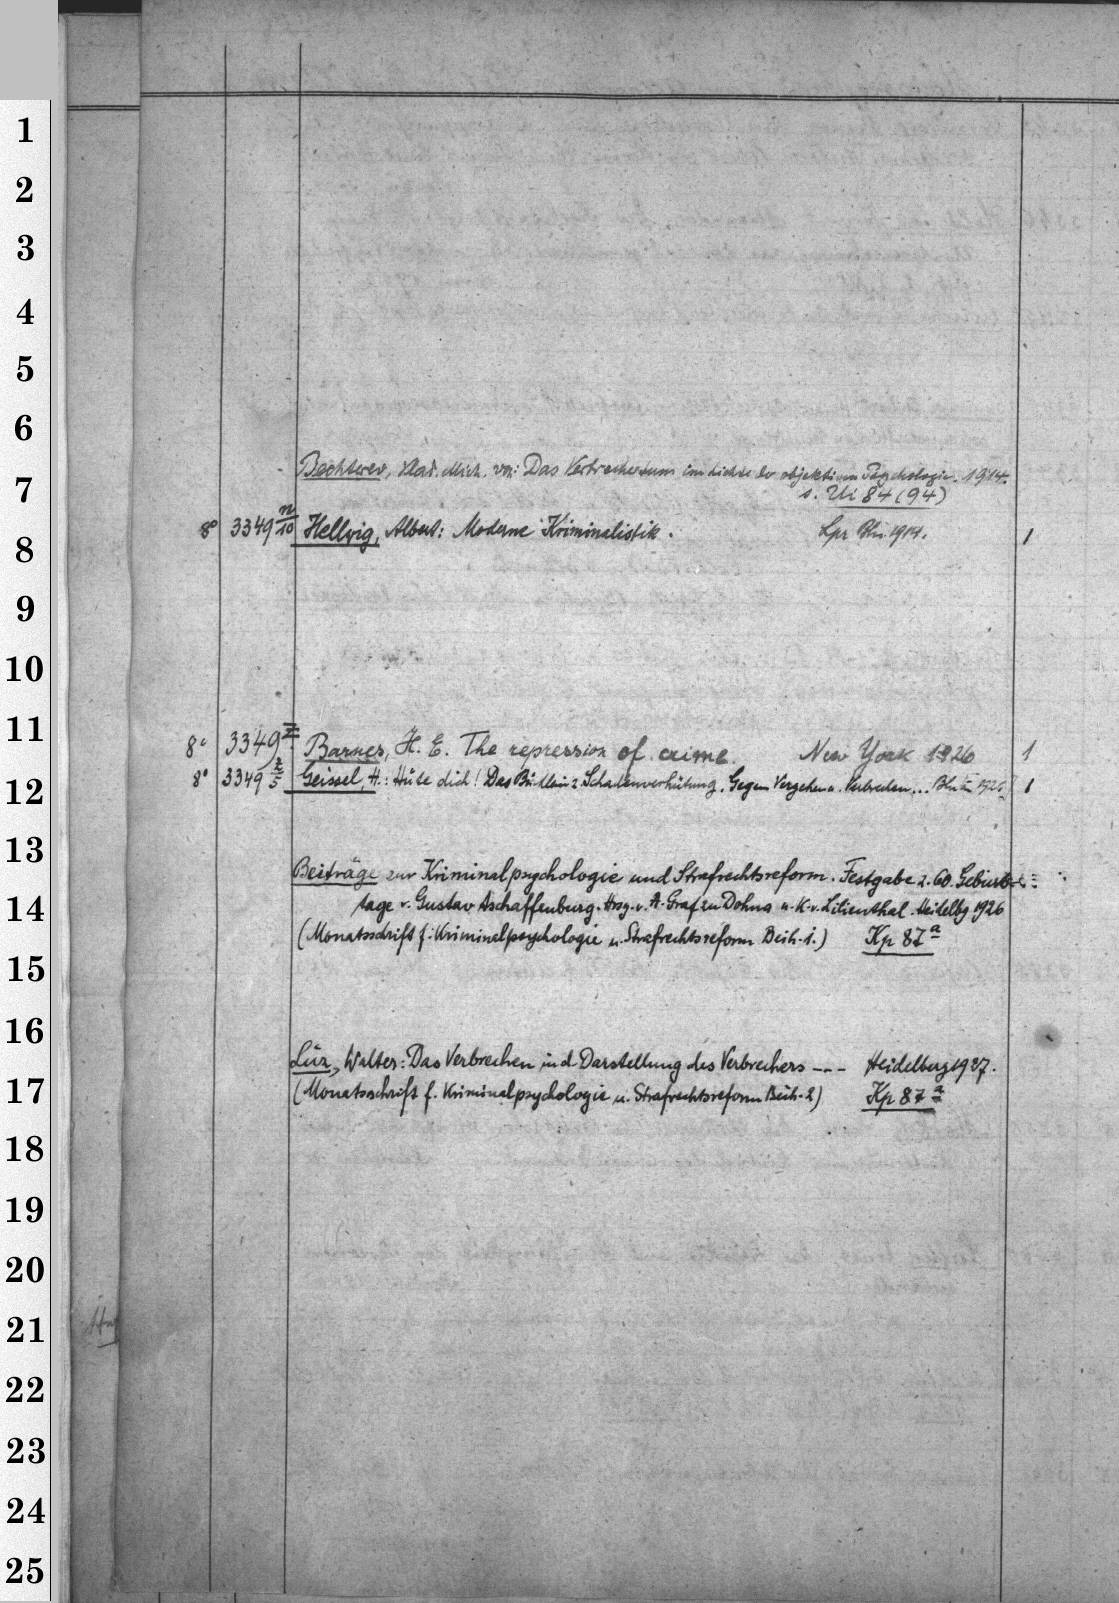 1
2
3
4
5
6
Bechterev, Wlad. Mich. von: Das Verbrechertum im Lichte der objektiven Psychologie. 1914.
7
s. Ui 84 (94)
8° 3349 n/10 Hellwig, Albert: Moderne Kriminalistik. Lpz Bln. 1914. 1
8
9
10
11
8° 3349 z Barnes, H. E. The repression of crime. New York 1926 1
8° 3349 z/5 Geissel, H.: Hüte dich! Das Büchlein z. Schadenverhütung. Gegen Vergehen u. Verbrechen... Bln 1
12
13
Beiträge zur Kriminalpsychologie und Strafrechtsreform. Festgabe z. 60. Geburts-
14
tage v. Gustav Aschaffenburg. Hrsg. v. A. Graf zu Dohna u. K. v. Lilienthal. Heidelbg 1926
(Monatsschrift f. Kriminalpsychologie u. Strafrechtsreform Beih. 1.) Kp 87 a
15
16
Luz, Walter: Das Verbrechen in d. Darstellung des Verbrechers --- Heidelberg 1927.
17
(Monatsschrift f. Kriminalpsychologie u. Strafrechtsreform Beih. 2) Kp 87 a
18
19
20
21
22
23
24
25